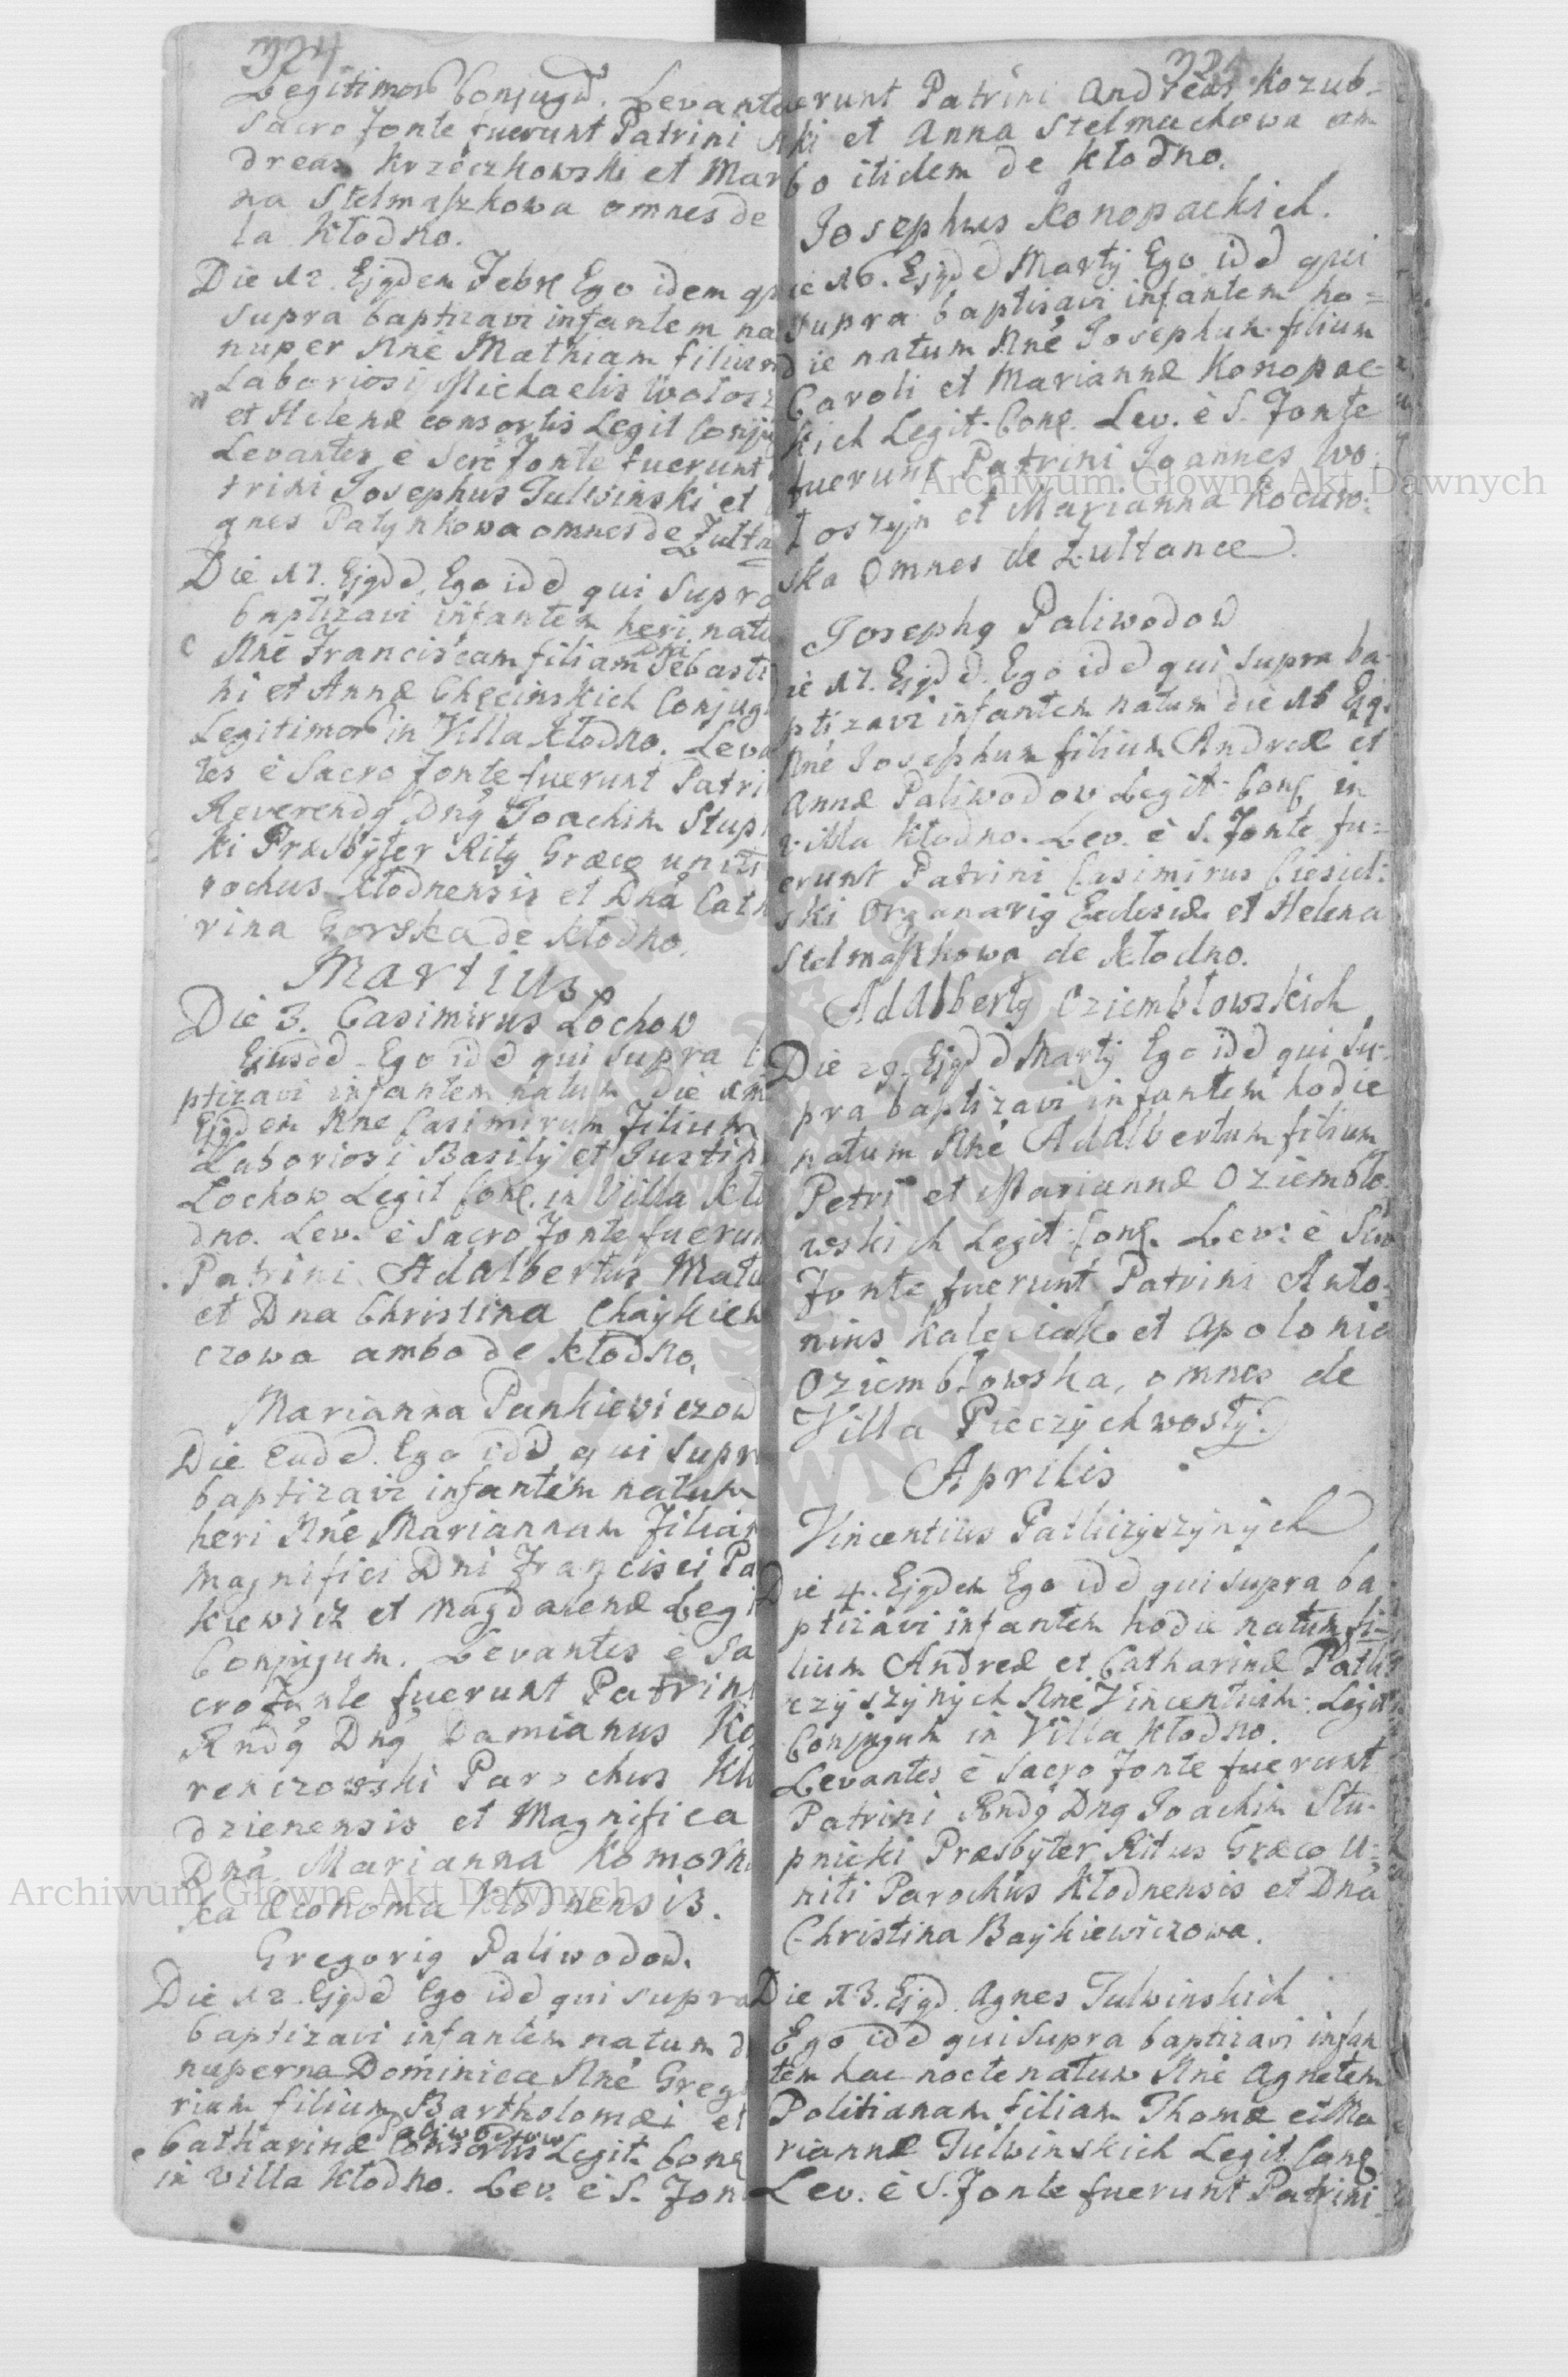 324
Legitimor Conjugũ. Levantes
Sacro fonte fuerunt Patrini
dreas Krzeczkowski et Mar
na Stelmaszkowa omnes de
la Kłodno.
Die 12. Ejqdem Febr Ego idem qui
supra baptizavi infantem na
nuper Nne Mathiam filium
Laboriosi Michaelis Wołosz
et Helenæ consortis Legit Conju
Levantes è Scrõ fonte fuerunt
trini Josephus Julwinski et
gnes Patynkowa omnes de Żułta
Die 17. Ejqdd Ego idd qui supra
baptizavi infantem heri natu
Nne Franciscam filiam Dni Sebasti
ni et Annæ Chęcinskich Conjug
Legitimor in Villa Kłodno. Leva
tes è Sacro fonte fuerunt Patri
Reverendq Dnq Joachim Stup
ki Præsbyter Ritq Græco uniti
rochus Kłodnensis et Dna Cath
rina Gorska de Kłodno.
Martius
Die 3. Casimirus Łochow
Ejusdd Ego idd qui supra
ptizavi infantem natum die
Ejqdem Nne Casimirum Filium
Laboriosi Basilÿ et Justin
Łochow Legit Conq. in Villa Kło
dno. Lev. è Sacro fonte fuerun
Patrini Adalbertus Matu
et Dna Christina Chaykiew
czowa ambo de Kłodno.
Marianna Pankiewiczow
Die eadd. Ego idd qui supr
baptizavi infantem natum
heri Nne Mariannam Filiam
Magnifici Dni Francisci Pa
kiewicz et Magdalenæ Legi
Conjugum. Levantes è Sa
cro fonte fuerunt Patrini
Rndq Dnq Damianus Ko
renczowski Parochus Kło
dzienensis et Magnifica
Dna Marianna Komorni
ka Œconoma Kłodnensis.
Gregoriq Paliwodow.
Die 12. Ejqdd Ego idd qui supra
baptizavi infantem natum d
nuperna Dominica Nne Grego
rium filium Bartholomæi et
Catharinæ Paliwodow Consortis Legit. Conq
in Villa Kłodno. Lev. è S. Fon
erunt Patrini Andreas Kozub=
ski et Anna Stelmachowa am
bo itidem de Kłodno.
Josephus Konopackich.
ie 16. Ejqdd Martÿ Ego idd qui
supra baptisavi infantem ho=
die natum Nne Josephum filium
Caroli et Mariannæ Konopac=
kich Legit. Conq. Lev. è S. Fonte
fuerunt Patrini Joannes Wo=
łoszyn et Marianna Kocurow:
ska Omnes de Żułtance.
Josephq Paliwodow
ie 17. Ejqdd. Ego idd qui supra ba
ptizavi infantem natum die 16 Ejq.
Nne Josephum filium Andreæ et
Annæ Paliwodow Legit. Conq. in
villa Kłodno. Lev. è S. Fonte fu=
erunt Patrini Casimirus Ciesiel:
ski Organariq Ecclesiæ et Helena
Stelmaszkowa de Kłodno.
Adalbertq Oziembłowskich
Die 29. Ejqdd Martÿ Ego idd qui su=
pra baptizavi infantem hodie
natum Nne Adalbertum filium
Petri et Mariannæ Oziembło=
wskich Legit. Conq. Lev: è Scro
Fonte fuerunt Patrini Anto=
nius et Apolonia
Oziembłowska, omnes de
Villa Pieczychwosty.
Aprilis
Vincentius Patliczyszÿnÿch
Die 4. Ejqdem Ego idd qui supra ba
ptizavi infantem hodie natum fi=
lium Andreæ et Catharinæ Patli
czÿszÿnÿch Nne Vincentium. Legit
Conjugum in Villa Kłodno.
Levantes è Sacro fonte fuerunt
Patrini Rndq Dnq Joachim Stu=
pnicki Præsbÿter Ritus Græco U=
niti Parochus Kłodnensis et Dna
Christina Baÿkiewiczowa.
Die 13. Ejqd. Agnes Julwinskich
Ego idd qui supra baptizavi infan
tem hac nocte natum Nne Agnetem
Politianam filiam Thomæ et Ma
riannæ Julwinskich Legit Conq
Lev. è S. Fonte fuerunt Patrini
Archiwum Głowne Akt Dawnych
Archiwum Głowne Akt Dawnych